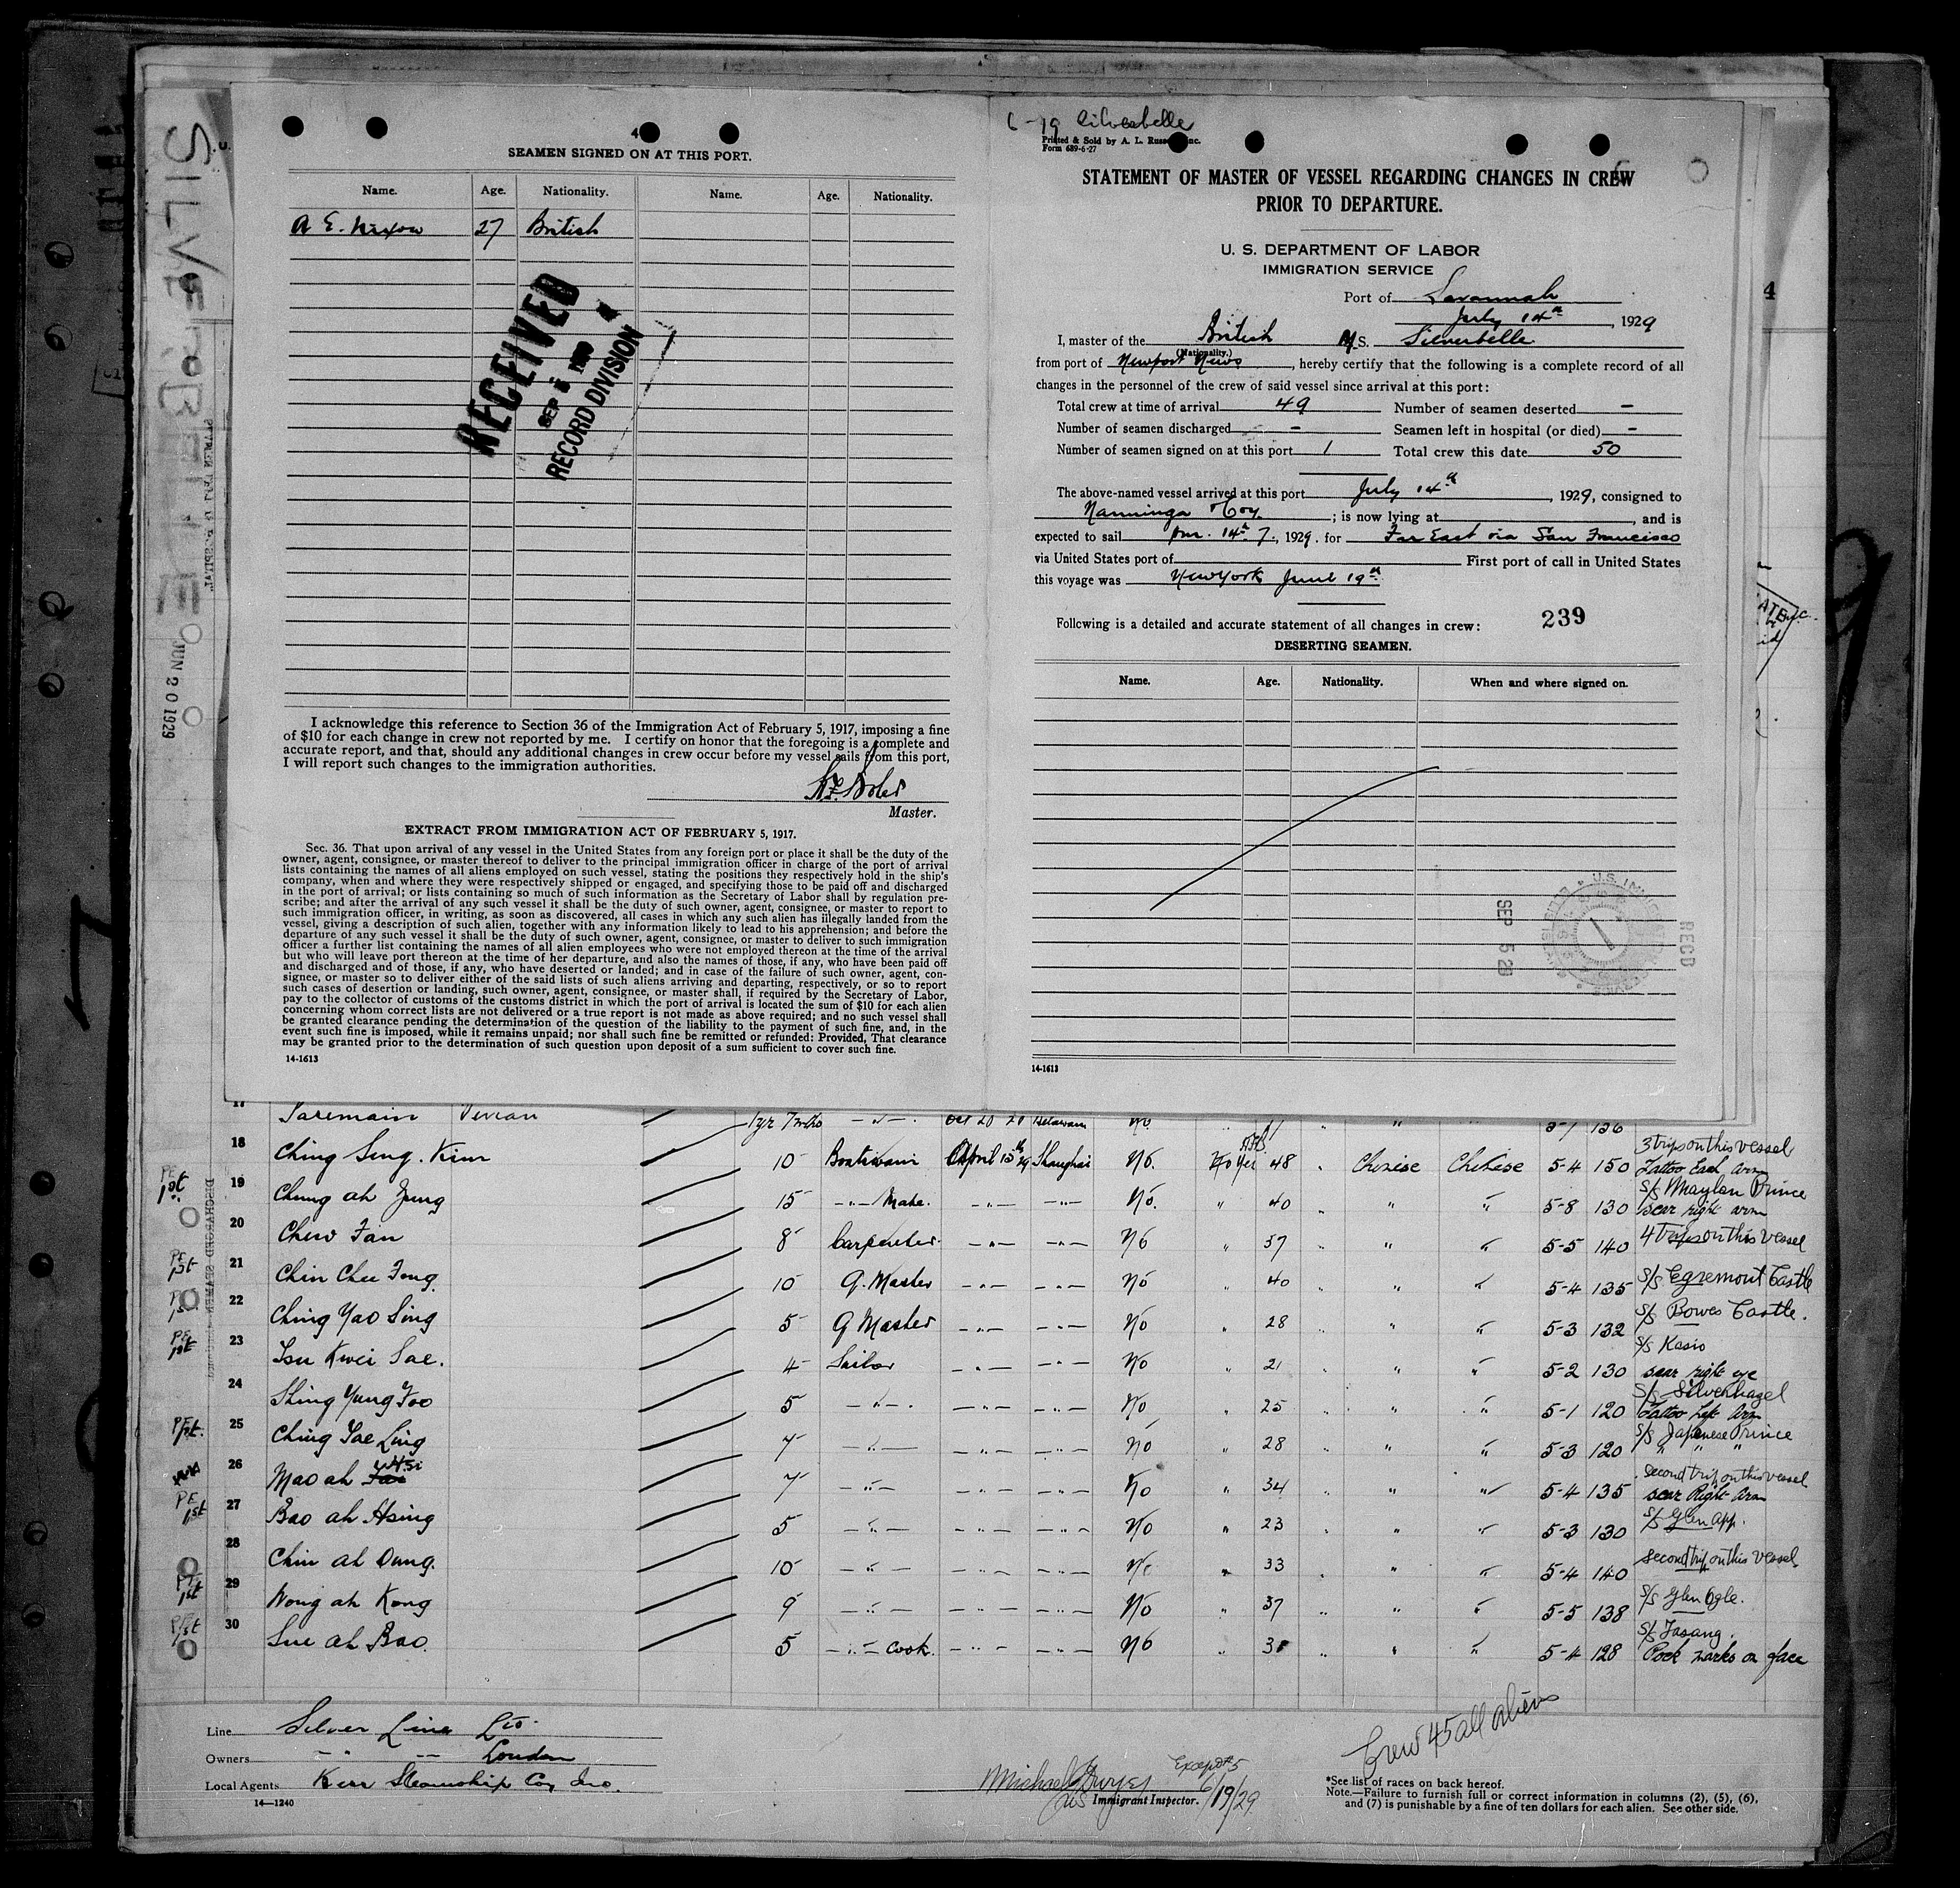 SILVERBELLE
JUN 20 1929
4
SEAMEN SIGNED ON AT THIS PORT.
Name. Age. Nationality. Name. Age. Nationality.
A E. Nixon 27 British
RECEIVED
SEP
RECORD DIVISION
I acknowledge this reference to Section 36 of the Immigration Act of February 5, 1917, imposing a fine
of $10 for each change in crew not reported by me. I certify on honor that the foregoing is a complete and
accurate report, and that, should any additional changes in crew occur before my vessel sails from this port,
I will report such changes to the immigration authorities.
Master.
EXTRACT FROM IMMIGRATION ACT OF FEBRUARY 5, 1917.
Sec. 36. That upon arrival of any vessel in the United States from any foreign port or place it shall be the duty of the
owner, agent, consignee, or master thereof to deliver to the principal immigration officer in charge of the port of arrival
lists containing the names of all aliens employed on such vessel, stating the positions they respectively hold in the ship's
company, when and where they were respectively shipped or engaged, and specifying those to be paid off and discharged
in the port of arrival; or lists containing so much of such information as the Secretary of Labor shall by regulation pre-
scribe; and after the arrival of any such vessel it shall be the duty of such owner, agent, consignee, or master to report to
such immigration officer, in writing, as soon as discovered, all cases in which any such alien has illegally landed from the
vessel, giving a description of such alien, together with any information likely to lead to his apprehension; and before the
departure of any such vessel it shall be the duty of such owner, agent, consignee, or master to deliver to such immigration
officer a further list containing the names of all alien employees who were not employed thereon at the time of the arrival
but who will leave port thereon at the time of her departure, and also the names of those, if any, who have been paid off
and discharged and of those, if any, who have deserted or landed; and in case of the failure of such owner, agent, con-
signee, or master so to deliver either of the said lists of such aliens arriving and departing, respectively, or so to report
such cases of desertion or landing, such owner, agent, consignee, or master shall, if required by the Secretary of Labor,
pay to the collector of customs of the customs district in which the port of arrival is located the sum of $10 for each alien
concerning whom correct lists are not delivered or a true report is not made as above required; and no such vessel shall
be granted clearance pending the determination of the question of the liability to the payment of such fine, and, in the
event such fine is imposed, while it remains unpaid; nor shall such fine be remitted or refunded: Provided, That clearance
may be granted prior to the determination of such question upon deposit of a sum sufficient to cover such fine.
14-1613
6-19 Silverbelle
Printed & Sold by A. L. Russell, Inc.
Form 689-6-27
STATEMENT OF MASTER OF VESSEL REGARDING CHANGES IN CREW
PRIOR TO DEPARTURE.
U. S. DEPARTMENT OF LABOR
IMMIGRATION SERVICE
Port of Savannah
July 14th, 1929
I, master of the British M.S. Silverbelle
(Nationality.)
from port of Newport News, hereby certify that the following is a complete record of all
changes in the personnel of the crew of said vessel since arrival at this port:
Total crew at time of arrival 49 Number of seamen deserted -
Number of seamen discharged - Seamen left in hospital (or died) -
Number of seamen signed on at this port 1 Total crew this date 50
The above-named vessel arrived at this port July 14th, 1929, consigned to
Nanninga & Coy.; is now lying at, and is
expected to sail pm. 14th 7., 1929. for Far East via San Francisco
via United States port of First port of call in United States
this voyage was New York June 19th
Following is a detailed and accurate statement of all changes in crew: 239
DESERTING SEAMEN.
Name. Age. Nationality. When and where signed on.
SEP 5 29
REC'D
14-1613
17 Saremain Vivian 1yr 7mths No 5-7 136
18 Ching Sing. Kim 10 Boatswain April 15th 29 Shanghai No. Yes 48 " Chinese Chinese 5-4 150 3 trips on this vessel
Tattoo Each arm
19 Chung ah Zung 15 -"- Mate. -"- -"- No. " 40 " " " 5-8 130 S/S Malayan Prince
scar right arm
20 Chew Fan 8 Carpenter. -"- -"- No " 37 " " " 5-5 140 4 trips on this vessel
21 Chin Chee Fong. 10 Q. Master -"- -"- No " 40 " " " 5-4 135 S/S Egremont Castle
22 Ching Yao Sing 5 Q Master -"- -"- No " 28 " " " 5-3 132 S/S Bowes Castle.
23 Tsu Kwei Sae. 4 Sailor -"- -"- No " 21 " " " 5-2 130 S/S Kasio
scar right eye
24 Shing Yung Foo 5 -"- -"- -"- No " 25 " " " 5-1 120 S/S Silverhazel
Tattoo Left Arm
25 Ching Sae Ling 7 -"- -"- -"- No " 28 " " " 5-3 120 S/S Japanese Prince
26 Mao ah 7 -"- -"- -"- No " 34 " " " 5-4 135 second trip on this vessel
scar Right Arm
27 Bao ah Hsing 5 -"- -"- -"- No " 23 " " " 5-3 130 S/S Glenapp.
28 Chin ah Dung. 10 -"- -"- -"- No " 33 " " " 5-4 140 second trip on this vessel
29 Wong ah Kong 9 -"- -"- -"- No " 37 " " " 5-5 138 S/S Glen Ogle.
30 Sue ah Bao. 5 -"- cook. -"- -"- No " " " " 5-4 128 S/S Fasang.
Pock marks on face
Line Silver Line Ltd.
Owners -"- -"- London
Local Agents Kerr Steamship Coy Inc.
14—1240
Except #5
Immigrant Inspector. 6/19/29
Crew 45 all aliens
*See list of races on back hereof.
Note.—Failure to furnish full or correct information in columns (2), (5), (6),
and (7) is punishable by a fine of ten dollars for each alien. See other side.